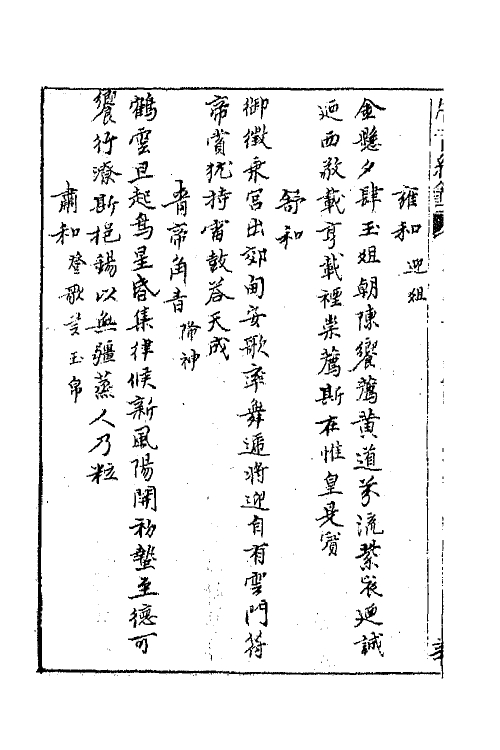 雍和 迎俎
金懸夕肆玉俎朝陳饗薦黄道芬流紫辰迺誠
迺西敬載享載禋崇薦斯在惟皇是賓
舒和
御徵乘宮出郊甸安歌率舞遞將迎自有雲門符
帝賞犹持雷鼓荅天成
青帝角音 降神
鶴雲旦起鳥星昏集律候新風陽開初蟄至德可
饗行潦斯挹錫以無疆蒸人乃粒
肅和 登歌奠玉帛